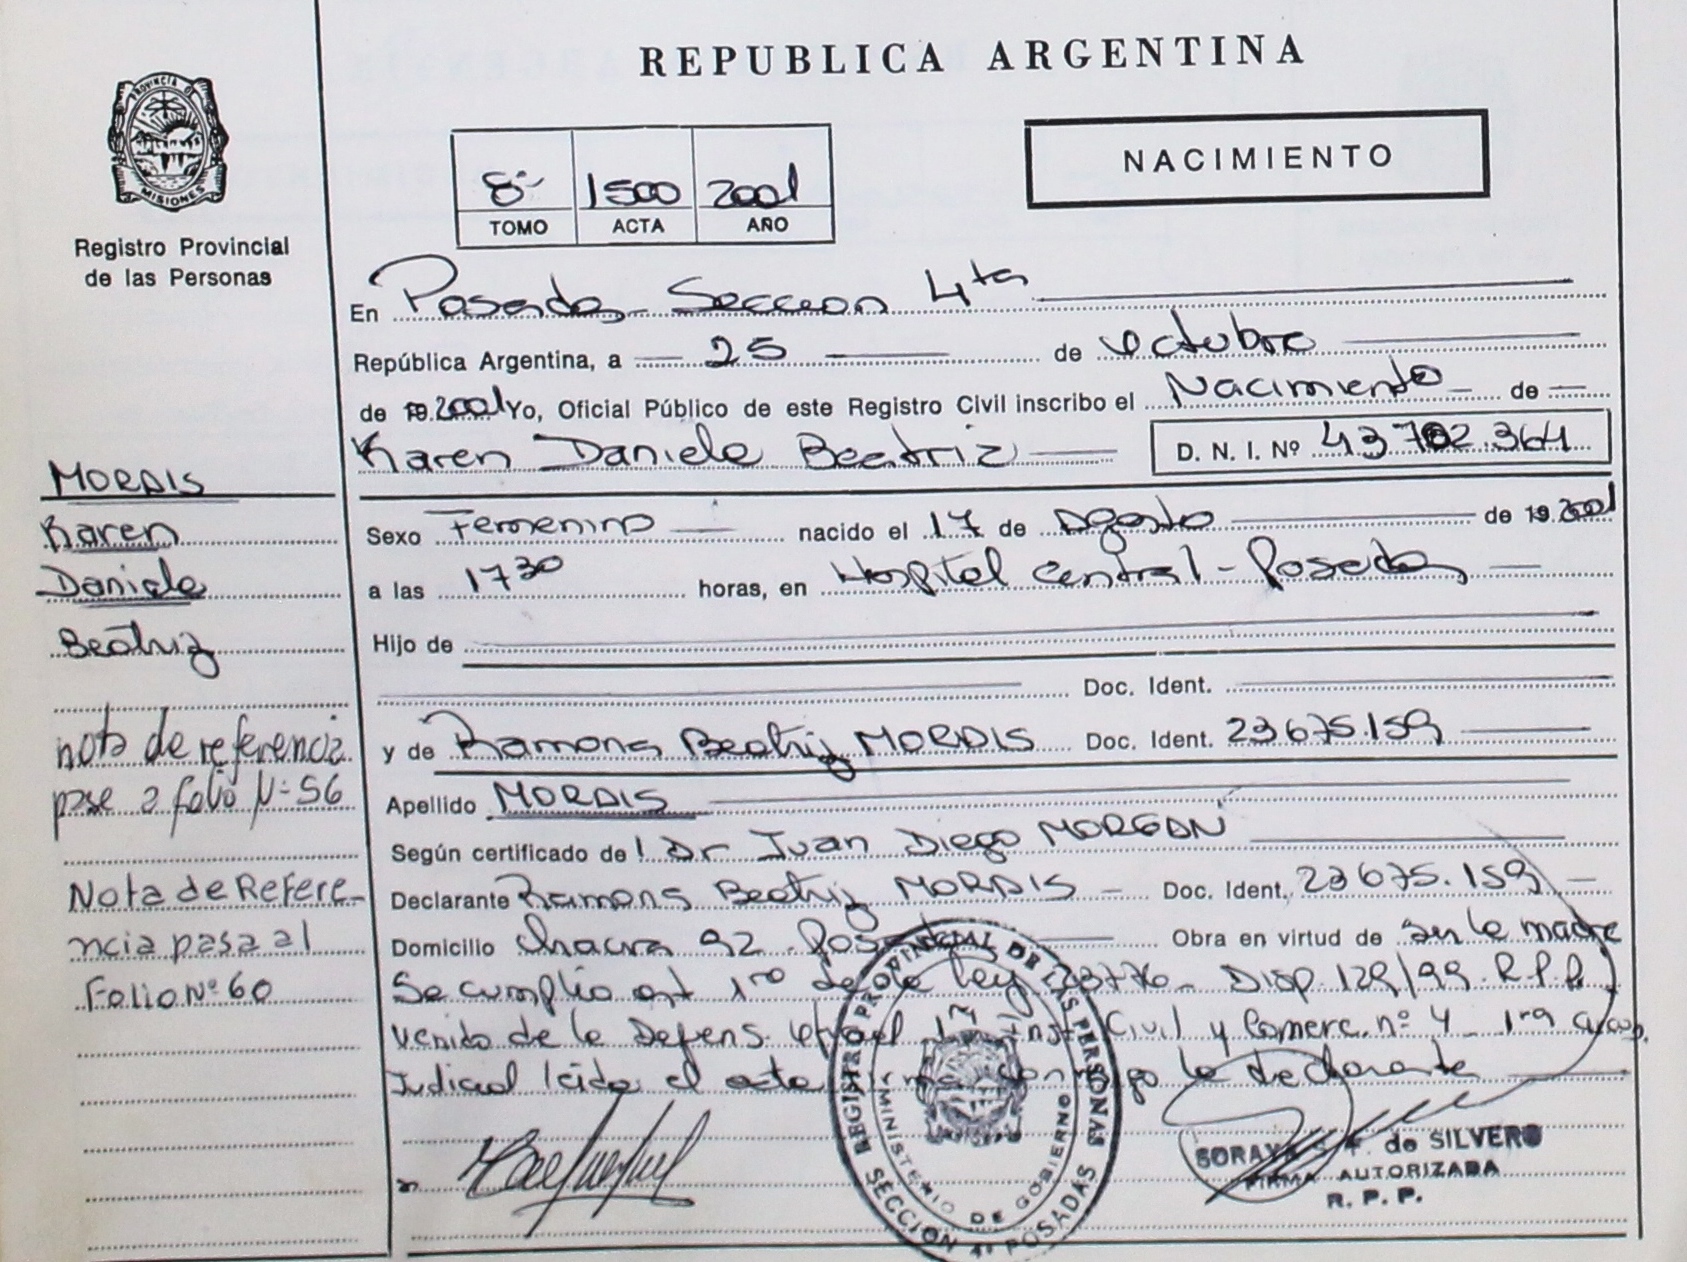 REPUBLICA ARGENTINA
PROVINCIA DE MISIONES
Registro Provincial
de las Personas
NACIMIENTO
8º 1500 2001
TOMO ACTA AÑO
En Posadas Seccion 4ta
República Argentina, a 25 de octubre
de 19.2001 Yo, Oficial Público de este Registro Civil inscribo el Nacimiento de
Karen Daniela Beatriz D. N. I. Nº 43702.364
Sexo Femenino nacido el 17 de Agosto de 19.2001
a las 17 30 horas, en Hospital Central - Posadas
Hijo de
Doc. Ident.
y de Ramona Beatriz MORAIS Doc. Ident. 23675.159
Apellido MORAIS
Según certificado de l Dr Juan Diego MORGAN
Declarante Ramona Beatriz MORAIS Doc. Ident. 23675.159
Domicilio Chacra 92 Posadas Obra en virtud de ser la madre
Se cumplio art 1ro de la Ley 23776 - DISP. 129/99. R.P.P.
Venido de la Defens. 1ra Inst Civil y Comerc. nº 4 1ra
Judicial leida el acta firma conmigo la declarante
MORAIS
Karen
Daniela
Beatriz
nota de referencia
pase a folio Nº 56
Nota de Refere-
ncia pasa al
Folio Nº 60
REGISTRO PROVINCIAL DE LAS PERSONAS
MINISTERIO DE GOBIERNO
SECCION 4ª POSADAS
SORAYA de SILVERO
FIRMA AUTORIZADA
R. P. P.